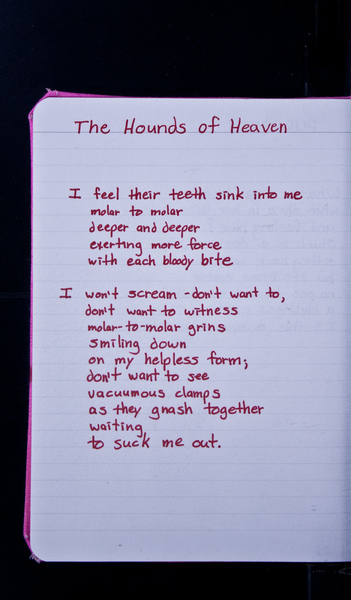 The Hounds of Heaven
I feel their teeth sink into me
molar to molar
deeper and deeper
exerting more force
with each bloody bite
I won't scream - don't want to,
don't want to witness
molar-to-molar grins
smiling down
on my helpless form;
don't want to see
vacuumous clamps
as they gnash together
waiting
to suck me out.